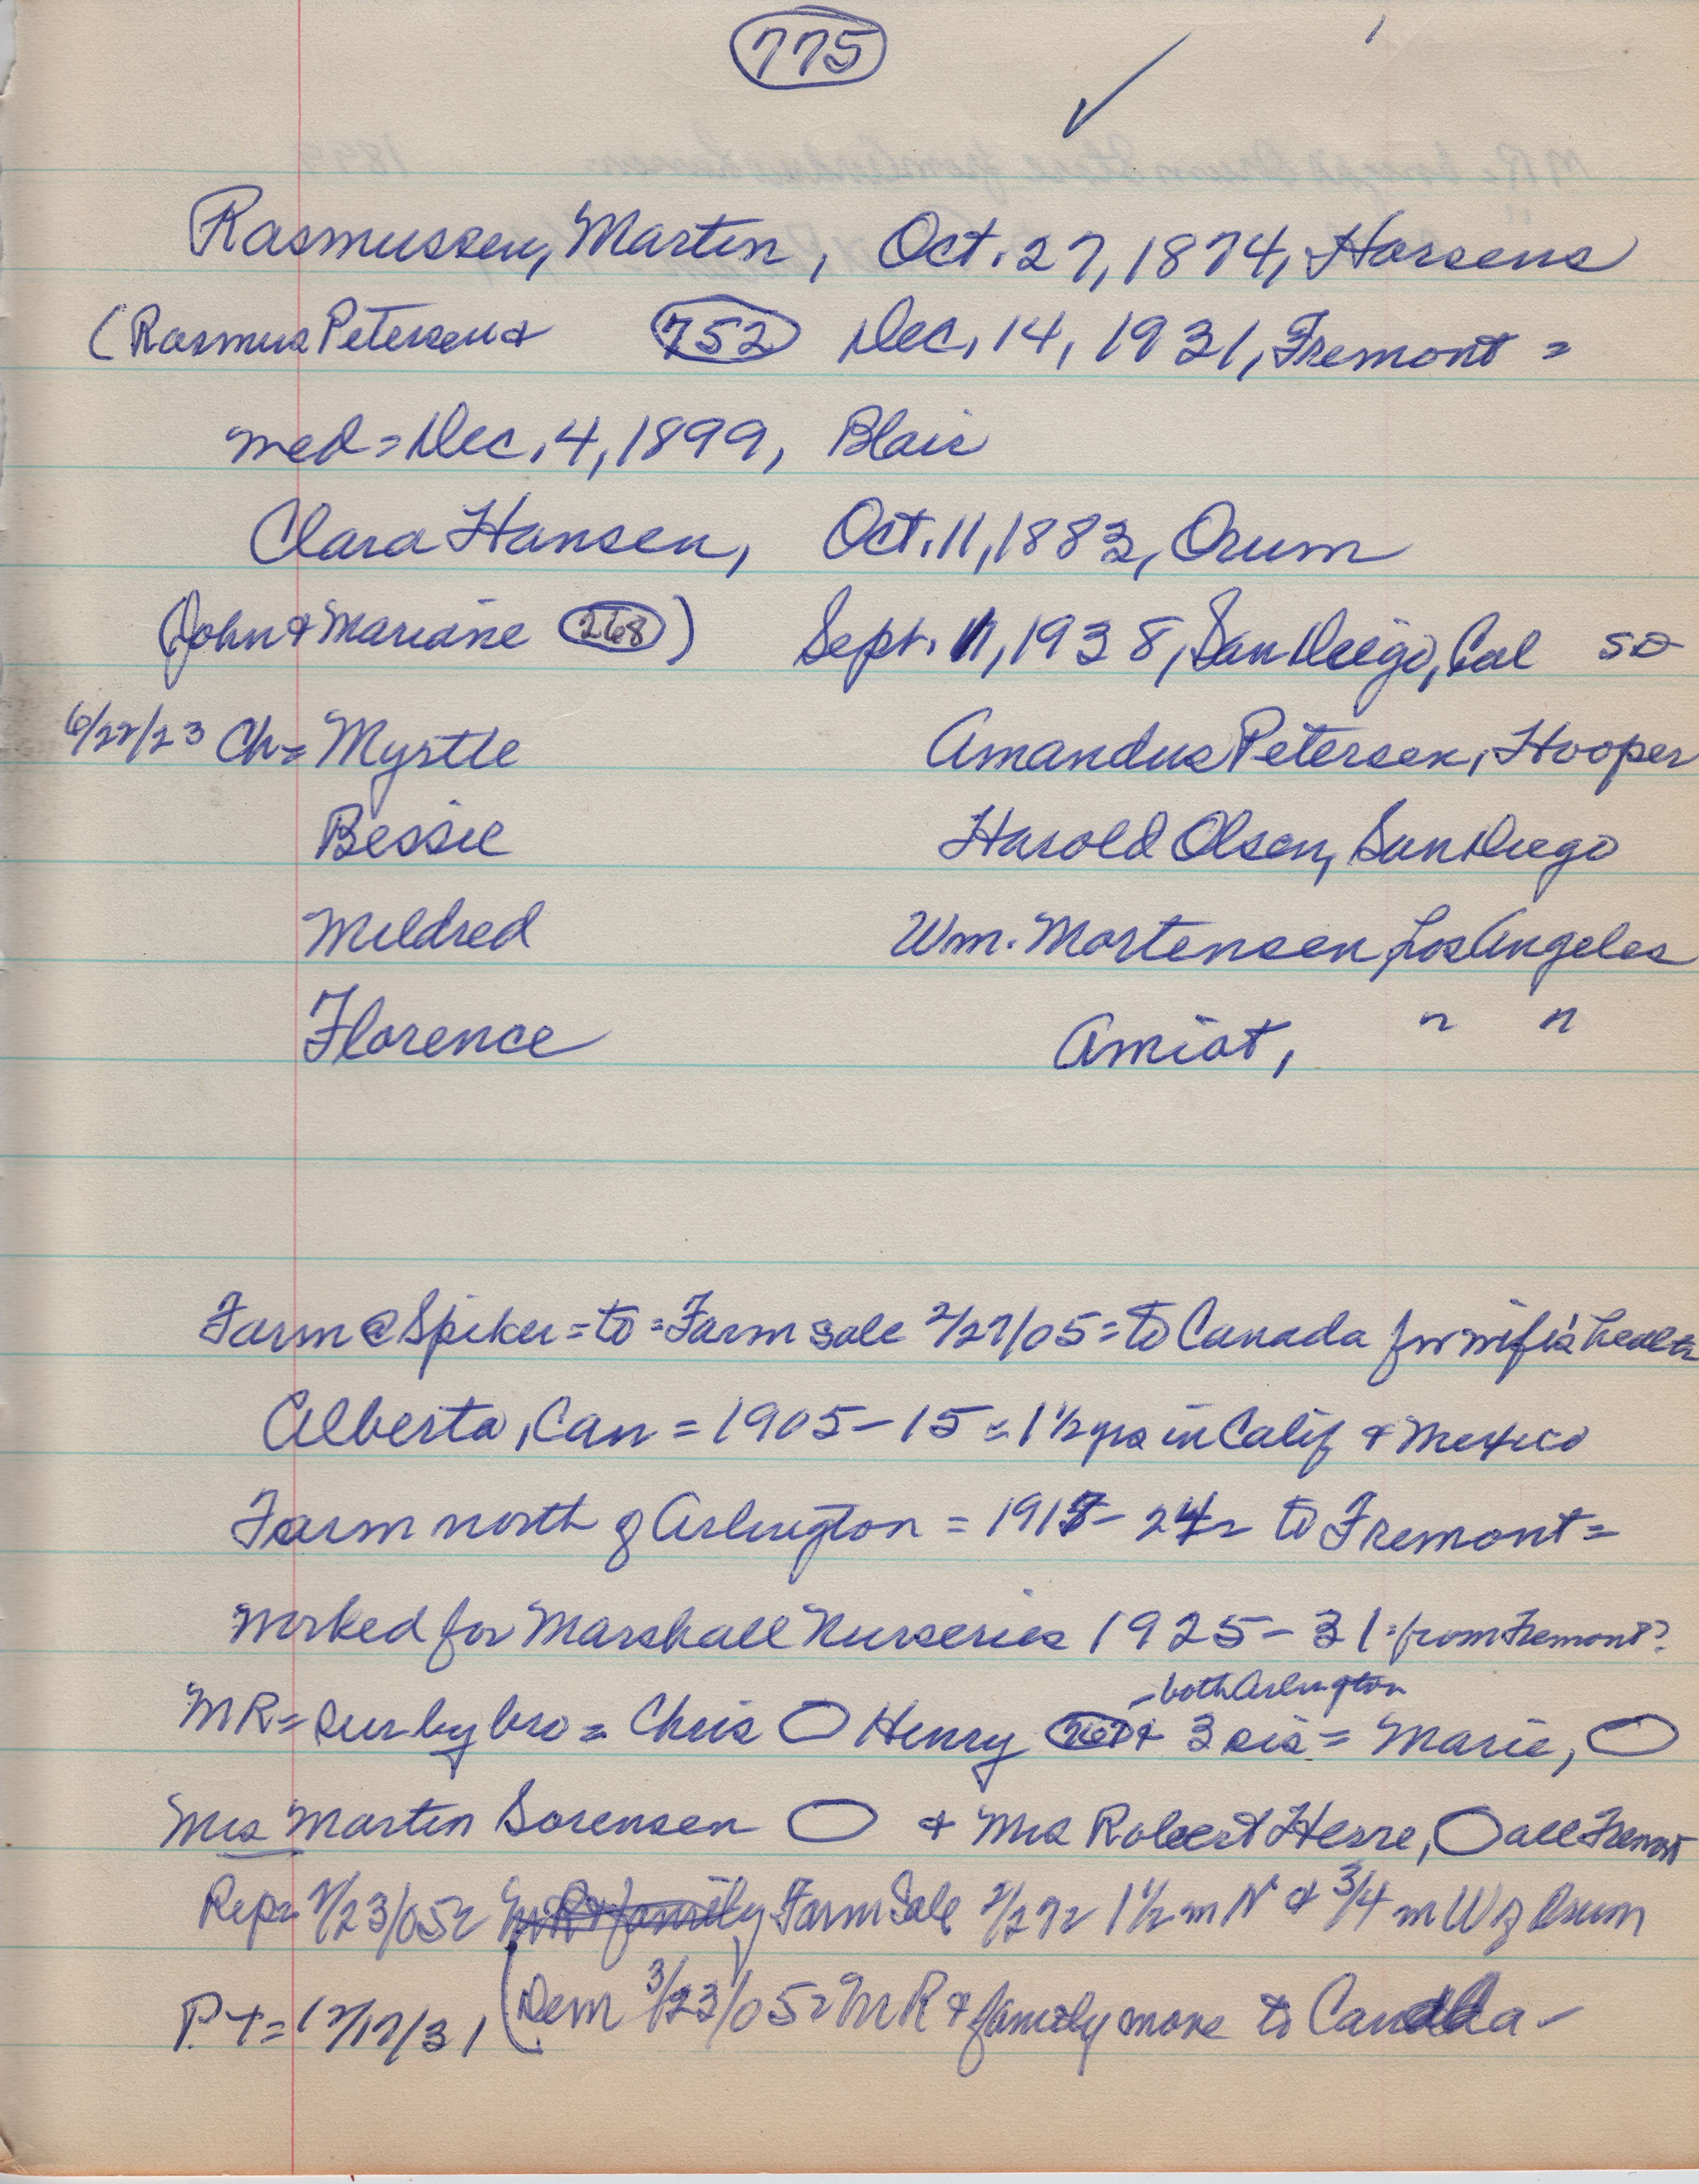 775
Rasmussen, Martin, Oct. 27, 1874, Horsens
(Rasmus Petersen & 752 Dec, 14, 1931, Fremont =
med = Dec, 4, 1899, Blair
Clara Hansen, Oct. 11, 1883, Orum
(John & Mariane 268) Sept. 11, 1938, San Diego, Cal 50
6/22/23 Ch = Myrtle Amandus Petersen, Hooper
Bessie Harold Olsen, San Diego
Mildred Wm. Mortensen, Los Angeles
Florence Amiot, " "
Farm @ Spiker = to = Farm sale 2/27/05 = to Canada for wife's health
Alberta, Can = 1905-15 = 1 1/2 yrs in Calif & Mexico
Farm north of Arlington = 1917-24 = to Fremont =
Worked for Marshall Nurseries 1925-31 = from Fremont?
- both Arlington
MR = sur by bro = Chris Henry 767 & 3 sis = Marie,
Mrs Martin Sorensen & Mrs Robert Herre, all Fremont
Rep = 2/23/05 = MR & family Farm Sale 2/27 = 1 1/2 m N & 3/4 m W of Orum
P.T = 12/17/31 (Dem 3/23/05 = MR & family move to Canada -